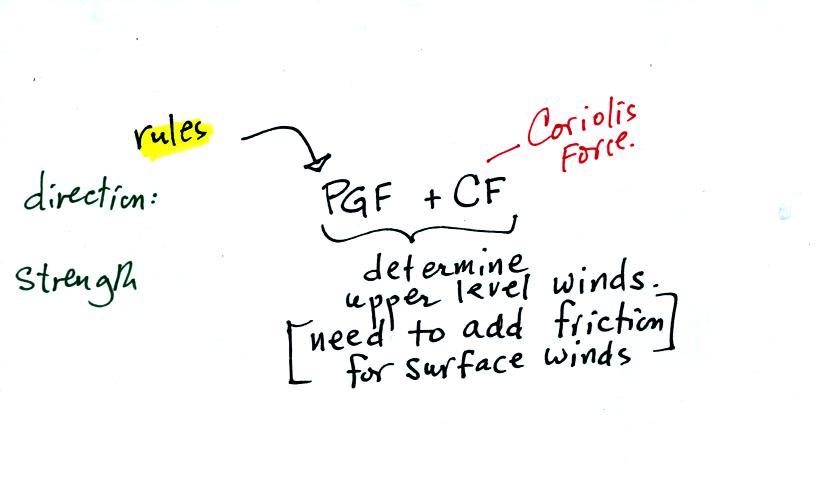 rules
Coriolis
Force.
direction:
PGF + CF
strength
determine
upper level winds.
[need to add friction]
for surface winds